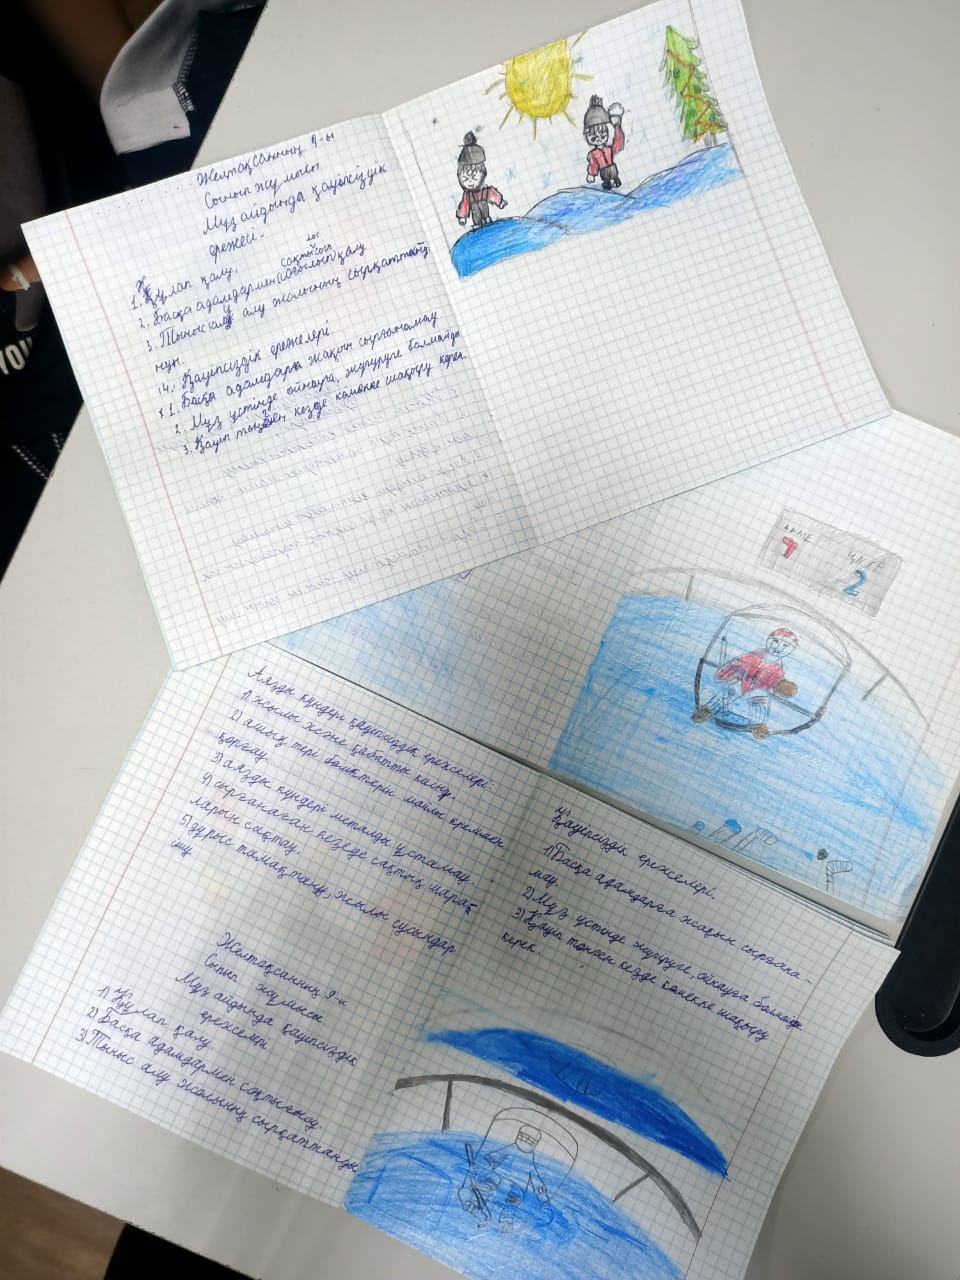 Желтоқсанның 9-ы
Сынып жұмысы
Мұз айдында қауіпсіздік
ережесі.
1. Құлап қалу.
2. Басқа адамдармен соғылып қалу
3. Тыныс алу жолының сырқаттануы
4. Қауіпсіздік ережелері.
1. Басқа адамдарға жақын сырғанамау
2. Мұз үстінде ойнауға, жүгіруге болмайды
3. Қауіп төнген кезде көмекке шақыру керек.
9
2
Аязды күндері қауіпсіздік ережелері:
1) жылы және қабатты киіну.
2) ашық тері бөліктерін майлы креммен
қорғау.
3) аязды күндері металды ұстамау.
4) сырғанаған кезеде сақтық шарат
ларын сақтау.
5) дұрыс тамақтану, жылы сусындар
ішу
Желтоқсанның 9-ы
Сынып жұмысы
Мұз айдында қауіпсіздік
ережелері
1) Құлап қалу.
2) Басқа адамдармен соқтығысу.
3) Тыныс алу жолының сырқаттануы
Қауіпсіздік ережелері.
1) Басқа адамдарға жақын сырғана-
мау.
2) Мұз үстінде жүгіруге, ойнауға болмайды
3) Қауіп төнген кезде көмекке шақыру
керек.
YOU